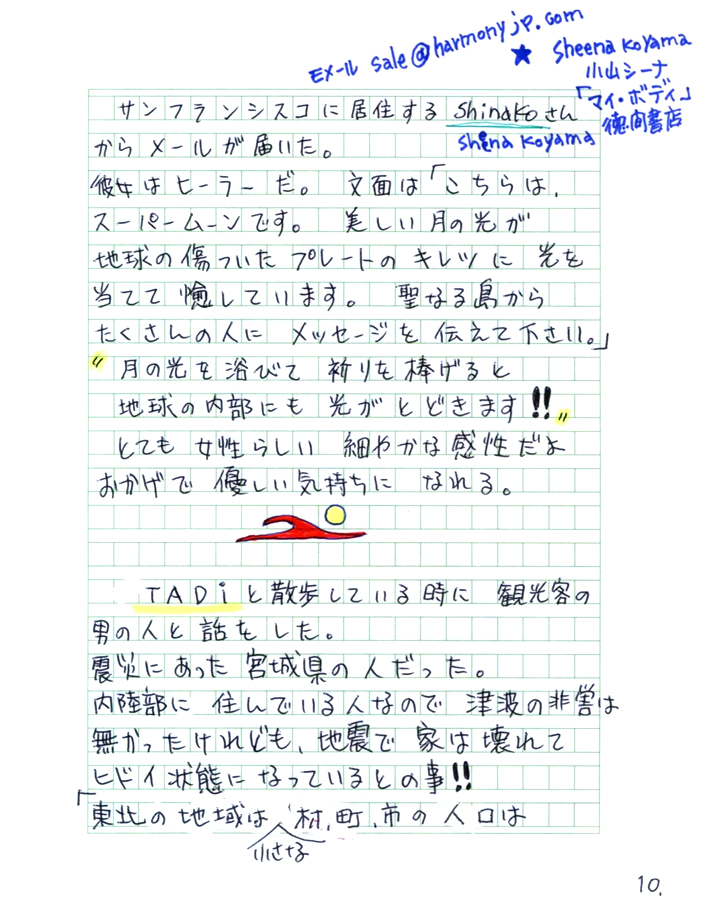 Eメール sale@harmonyjp.com
★ Sheena Koyama
小山シーナ
「マイ・ボディ」
徳間書店
サンフランシスコに居住する Shinakoさん
Shina Koyama
からメールが届いた。
彼女はヒーラーだ。 文面は「こちらは、
スーパームーンです。 美しい月の光が
地球の傷ついた プレートの キレツに 光を
当てて 癒しています。 聖なる島から
たくさんの人に メッセージを 伝えて下さい。」
〃月の光を浴びて 祈りを棒げると
地球の内部にも 光がとどきます!!〃
とても 女性らしい 細やかな感性だよ
おかげで 優しい気持ちに なれる。
TADiと散歩している時に 観光客の
男の人と 話をした。
震災にあった 宮城県の人だった。
内陸部に 住んでいる人なので 津波の非害は
無かったけれども、地震で 家は壊れて
ヒドイ状態に なっているとの事!!
「東北の地域は、村、町、市の人口は
小さな
10.